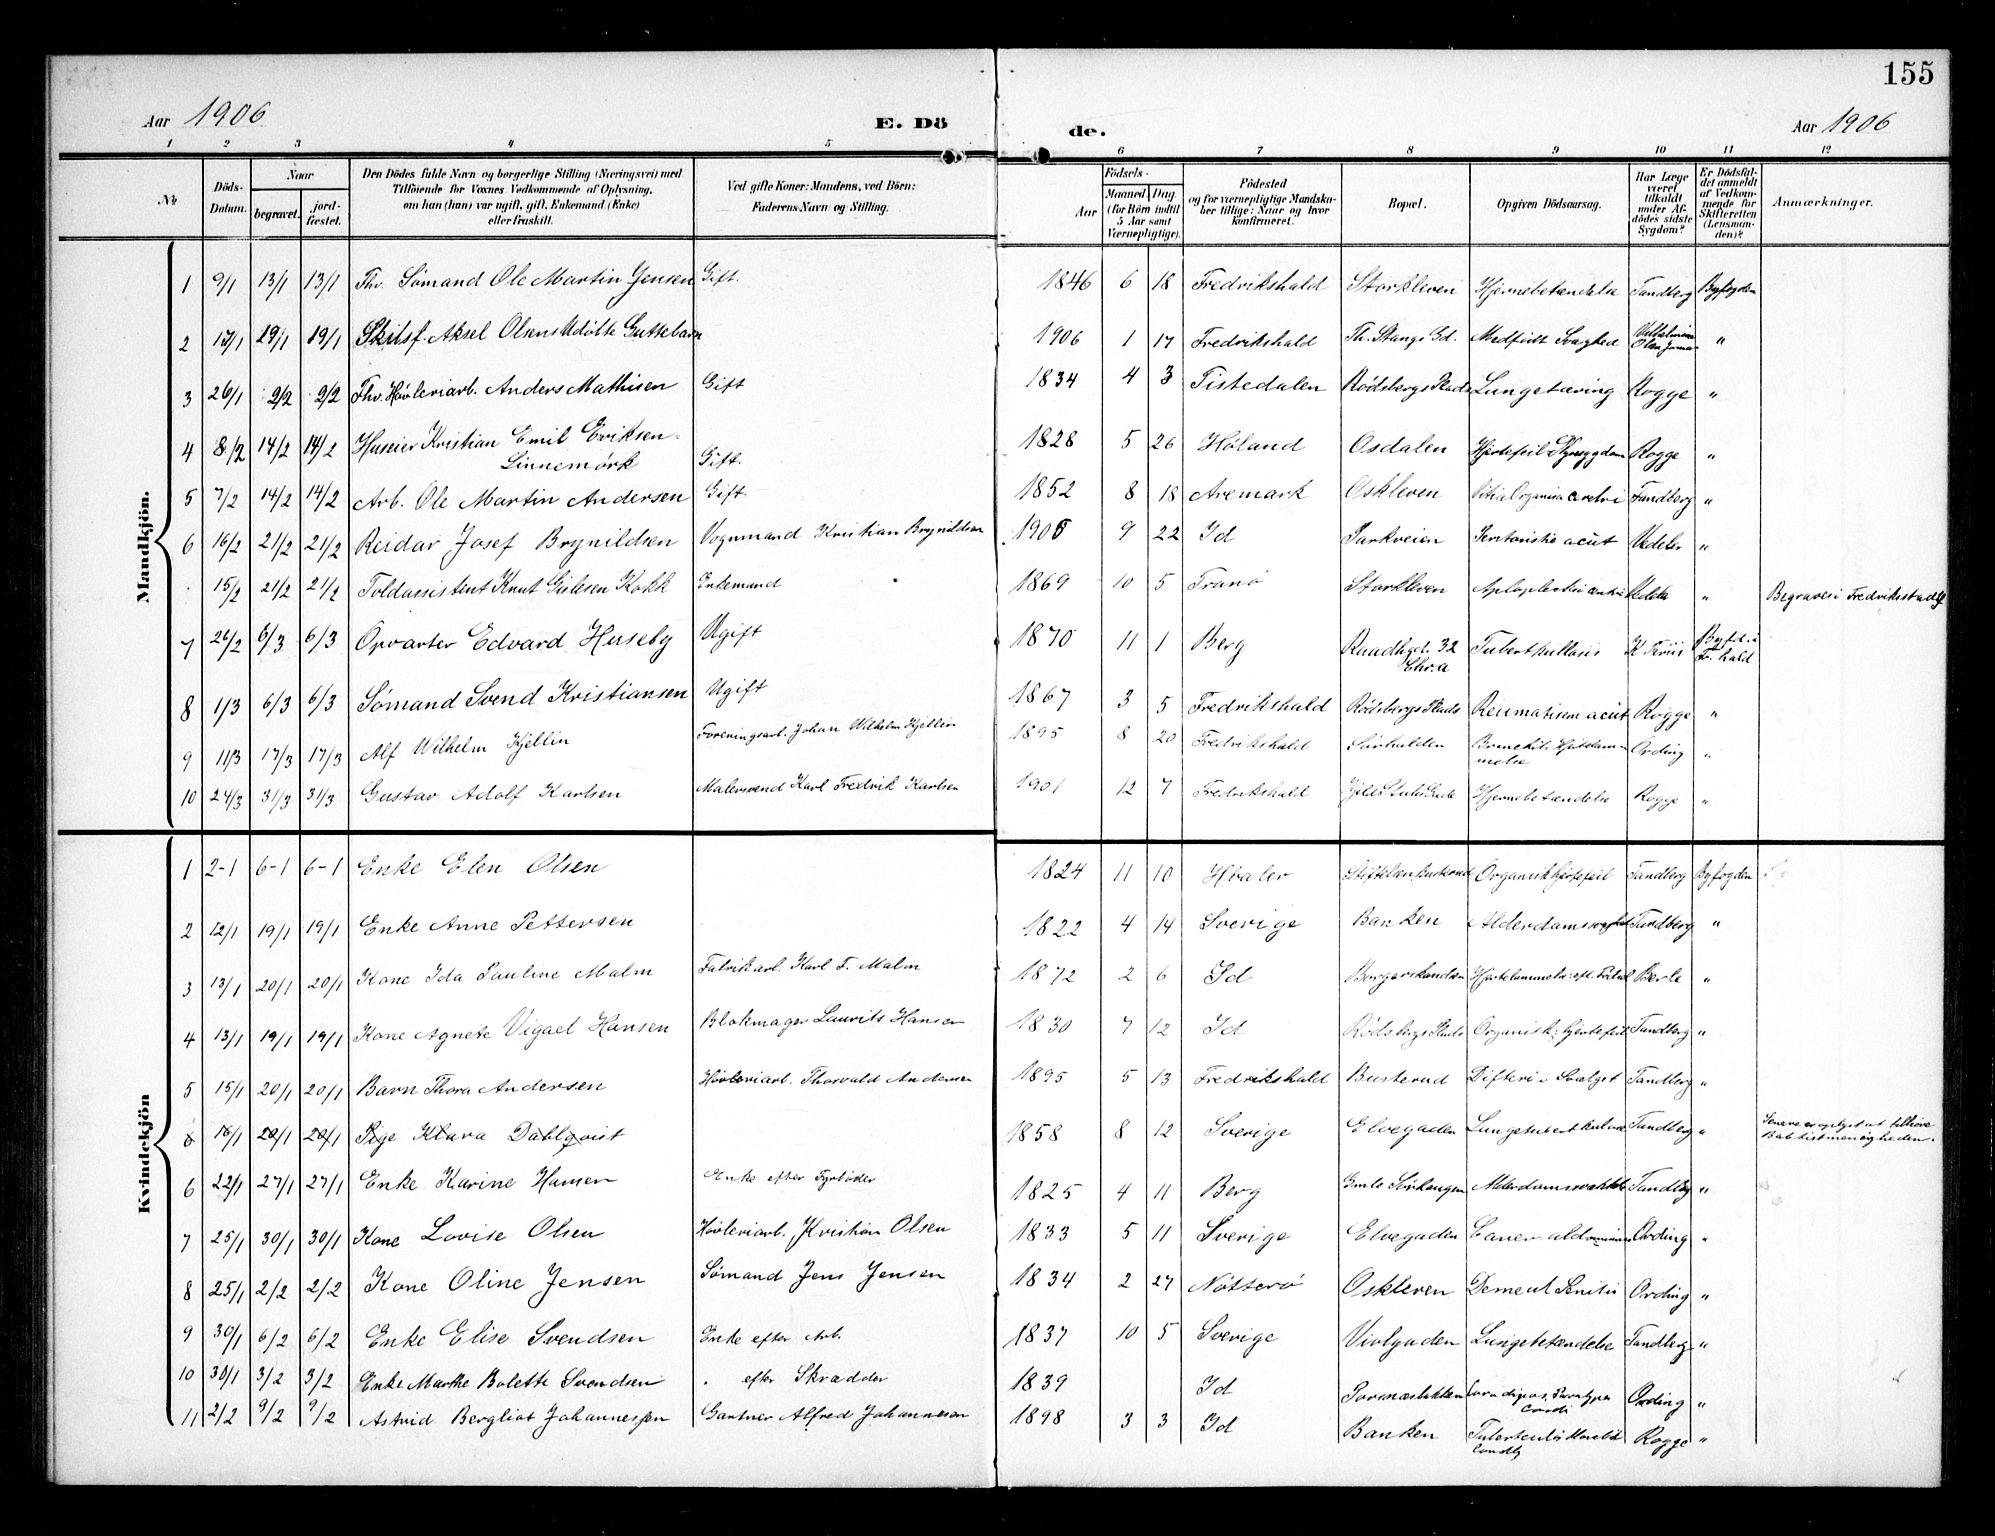 155
Aar 1906
E. Dö
de.
Aar 1906
1 2 3 4 5 6 7 8 9 10 11 12
No
Döds-Datum.
Naar
begravet.
jord-fæstet.
Den Dödes fulde Navn og borgerlige Stilling (Næringsvei) med
Tilföiende for Voxnes Vedkommende af Oplysning,
om han (hun) var ugift, gift, Enkemand (Enke)
eller fraskilt.
Ved gifte Koner: Mandens, ved Börn:
Faderens Navn og Stilling.
Födsels-
Aar
Maaned
Dag
(for Börn indtil
5 Aar samt
Værnepligtige).
Födested
og for værnepligtige Mandska-
ber tillige: Naar og hvor
konfirmeret.
Bopæl.
Opgiven Dödsaarsag.
Har Læge
været
tilkaldt
under Af-
dödes sidste
Sygdom?
Er Dödsfal-
det anmeldt
af Vedkom-
mende for
Skifteretten
(Lensman-
den)?
Anmærkninger.
Mandkjön.
1 9/1 13/1 13/1 Fhv. Sømand Ole Martin Jensen Gift. 1846 6 18 Fredrikshald Storkleven Hjernebetændelse Tandberg Byfogden
2 17/1 19/1 19/1 Aksel Olsens Guttebarn 1906 1 17 Fredrikshald Th. Stangs Gd. Medfödt Svaghed Olsen "
3 26/1 2/2 2/2 Fhv. Høvleriarb. Anders Mathisen Gift 1834 4 3 Tistedalen Rödsbergs Plads Lungetæring Rogge "
4 8/2 14/2 14/2 Huseier Kristian Emil Eriksen
Linnemørk Gift. 1828 5 26 Høland Osdalen Hjertefeil Rogge "
5 7/2 14/2 14/2 Arb. Ole Martin Andersen Gift 1852 8 18 Aremark Oskleven Vitia Organisa Tandberg "
6 16/2 21/2 21/2 Reidar Josef Brynildsen Vognmand Kristian Brynildsen 1905 9 22 Id Parkveien acut Vedeler "
15/2 21/2 21/2 Toldassistent Knut Gislesen Kokk Enkemand 1869 10 5 Tranö Storkleven "
Begraves i Fredriksstad
7 26/2 6/3 6/3 Opvarter Edvard Huseby Ugift 1870 11 1 Berg 32
Chr.a Tuberkullosis K
Fr.hald
8 1/3 6/3 6/3 Sømand Svend Kristiansen Ugift 1867 3 5 Fredrikshald Rödsbergs Plads Reumatism acut Rogge "
9 11/3 17/3 17/3 Alf Wilhelm Kjellin Foreningsarb. Johan Wilhelm Kjellin 1895 8 20 Fredrikshald Sörhalden Ording "
10 24/3 31/3 31/3 Gustav Adolf Karlsen Malersvend Karl Fredrik Karlsen 1901 12 7 Fredrikshald Hjernebetændelse Rogge "
Kvindekjön
1 2-1 6-1 6-1 Enke Elen Olsen 1824 11 10 Hvaler Stiftelsen Busterud Organisk hjertefeil Tandberg Byfogden
2 12/1 19/1 19/1 Enke Anne Pettersen 1822 4 14 Sverige Banken Tandberg "
3 13/1 20/1 20/1 Kone Ida Pauline Malm Fabrikarb. Karl F. Malm 1872 2 6 Id Borgerskandsen Berle "
4 13/1 19/1 19/1 Kone Agnete Vigael Hansen Blokmager Laurits Hansen 1830 7 12 Id Rödsbergs Plads Organisk: hjertefeil Tandberg "
5 15/1 20/1 20/1 Barn Thora Andersen Høvleriarb. Thorvald Andersen 1895 5 13 Fredrikshald Busterud Difteri i Svælget Tandberg "
6 16/1 20/1 20/1 Pige Klara Dahlqvist 1858 8 12 Sverige Elvegaden Lungetuberkulose Tandberg "
Senere oplyst at tilhøre
Babtistmenigheden.
6 22/1 27/1 27/1 Enke Karine Hansen Enke efter Fyrböder 1825 4 11 Berg Gmle Alderdomssvakhet Tandberg "
7 25/1 30/1 30/1 Kone Lovise Olsen Høvleriarb. Kristian Olsen 1833 5 11 Sverige Elvegaden Cancer Ording "
8 25/1 2/2 2/2 Kone Oline Jensen Sømand Jens Jensen 1834 2 27 Nötterö Oskleven Ording "
9 30/1 6/2 6/2 Enke Elise Svendsen Enke efter Arb. 1837 10 5 Sverige Violgaden Lungebetændelse Tandberg "
10 30/1 3/2 3/2 Enke Marthe Bolette Svendsen " efter Skrædder 1839 Id Ording "
Cordi
11 2/2 9/2 9/2 Astrid Bergliot Johannessen Gartner Alfred Johannesen 1898 3 3 Id Banken Rogge "